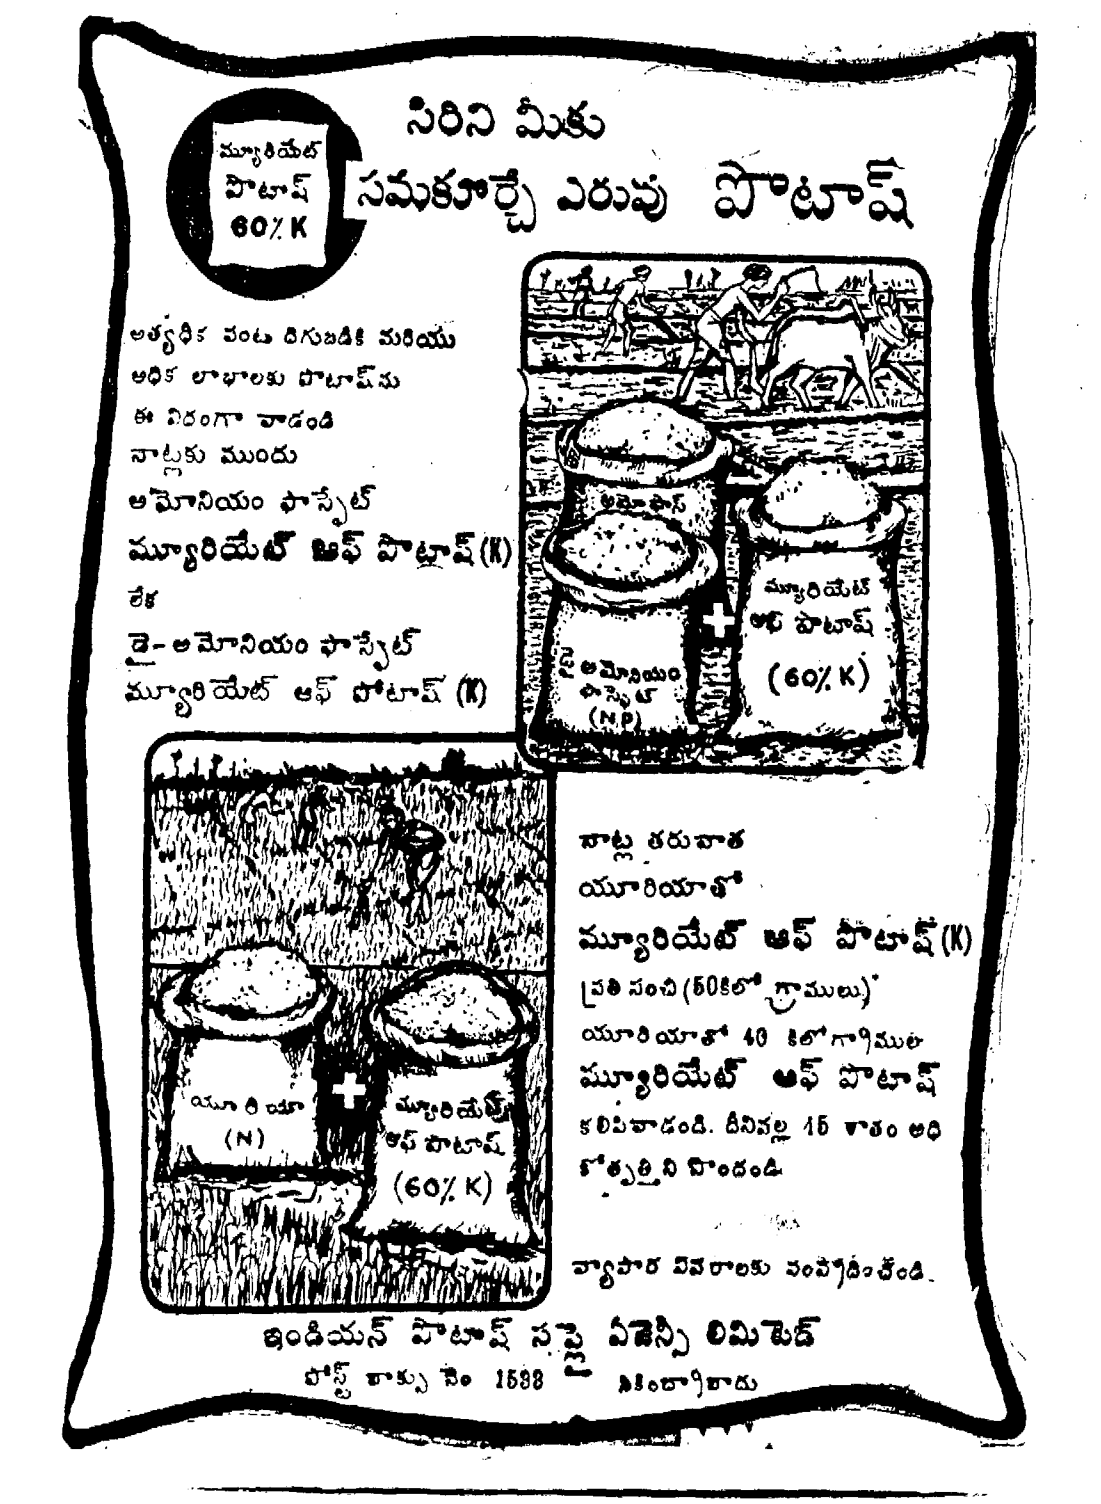 సిరిని మీకు
సమకూర్చే ఎరువు పొటాష్
మ్యూరియేట్
పొటాష్
60% K
అత్యధిక పంట దిగుబడికి మరియు
అధిక లాభాలకు పొటాష్‌ను
ఈ విదంగా వాడండి
నాట్లకు ముందు
అమోనియం ఫాస్ఫేట్
మ్యూరియేట్ ఆఫ్ పొటాష్ (K)
లేక
డై-అమోనియం ఫాస్ఫేట్
మ్యూరియేట్ ఆఫ్ పోటాష్ (K)
అమోఫాస్
డై అమోనియం
ఫాస్ఫేట్
(N.P)
మ్యూరియేట్
ఆఫ్ పొటాష్
(60% K)
నాట్ల తరువాత
యూరియాతో
మ్యూరియేట్ ఆఫ్ పొటాష్ (K)
ప్రతి సంచి (50కిలో గ్రాములు)
యూరియాతో 40 కిలోగ్రాముల
మ్యూరియేట్ ఆఫ్ పొటాష్
కలిపివాడండి. దీనివల్ల 15 శాతం అధి
కోత్పత్తిని పొందండి
యూరియా
(N)
మ్యూరియేట్
ఆఫ్ పొటాష్
(60% K)
వ్యాపార వివరాలకు సంప్రదించండి.
ఇండియన్ పొటాష్ సప్లై ఏజెన్సీ లిమిటెడ్
పోస్ట్ బాక్సు నెం 1538 సికింద్రాబాదు